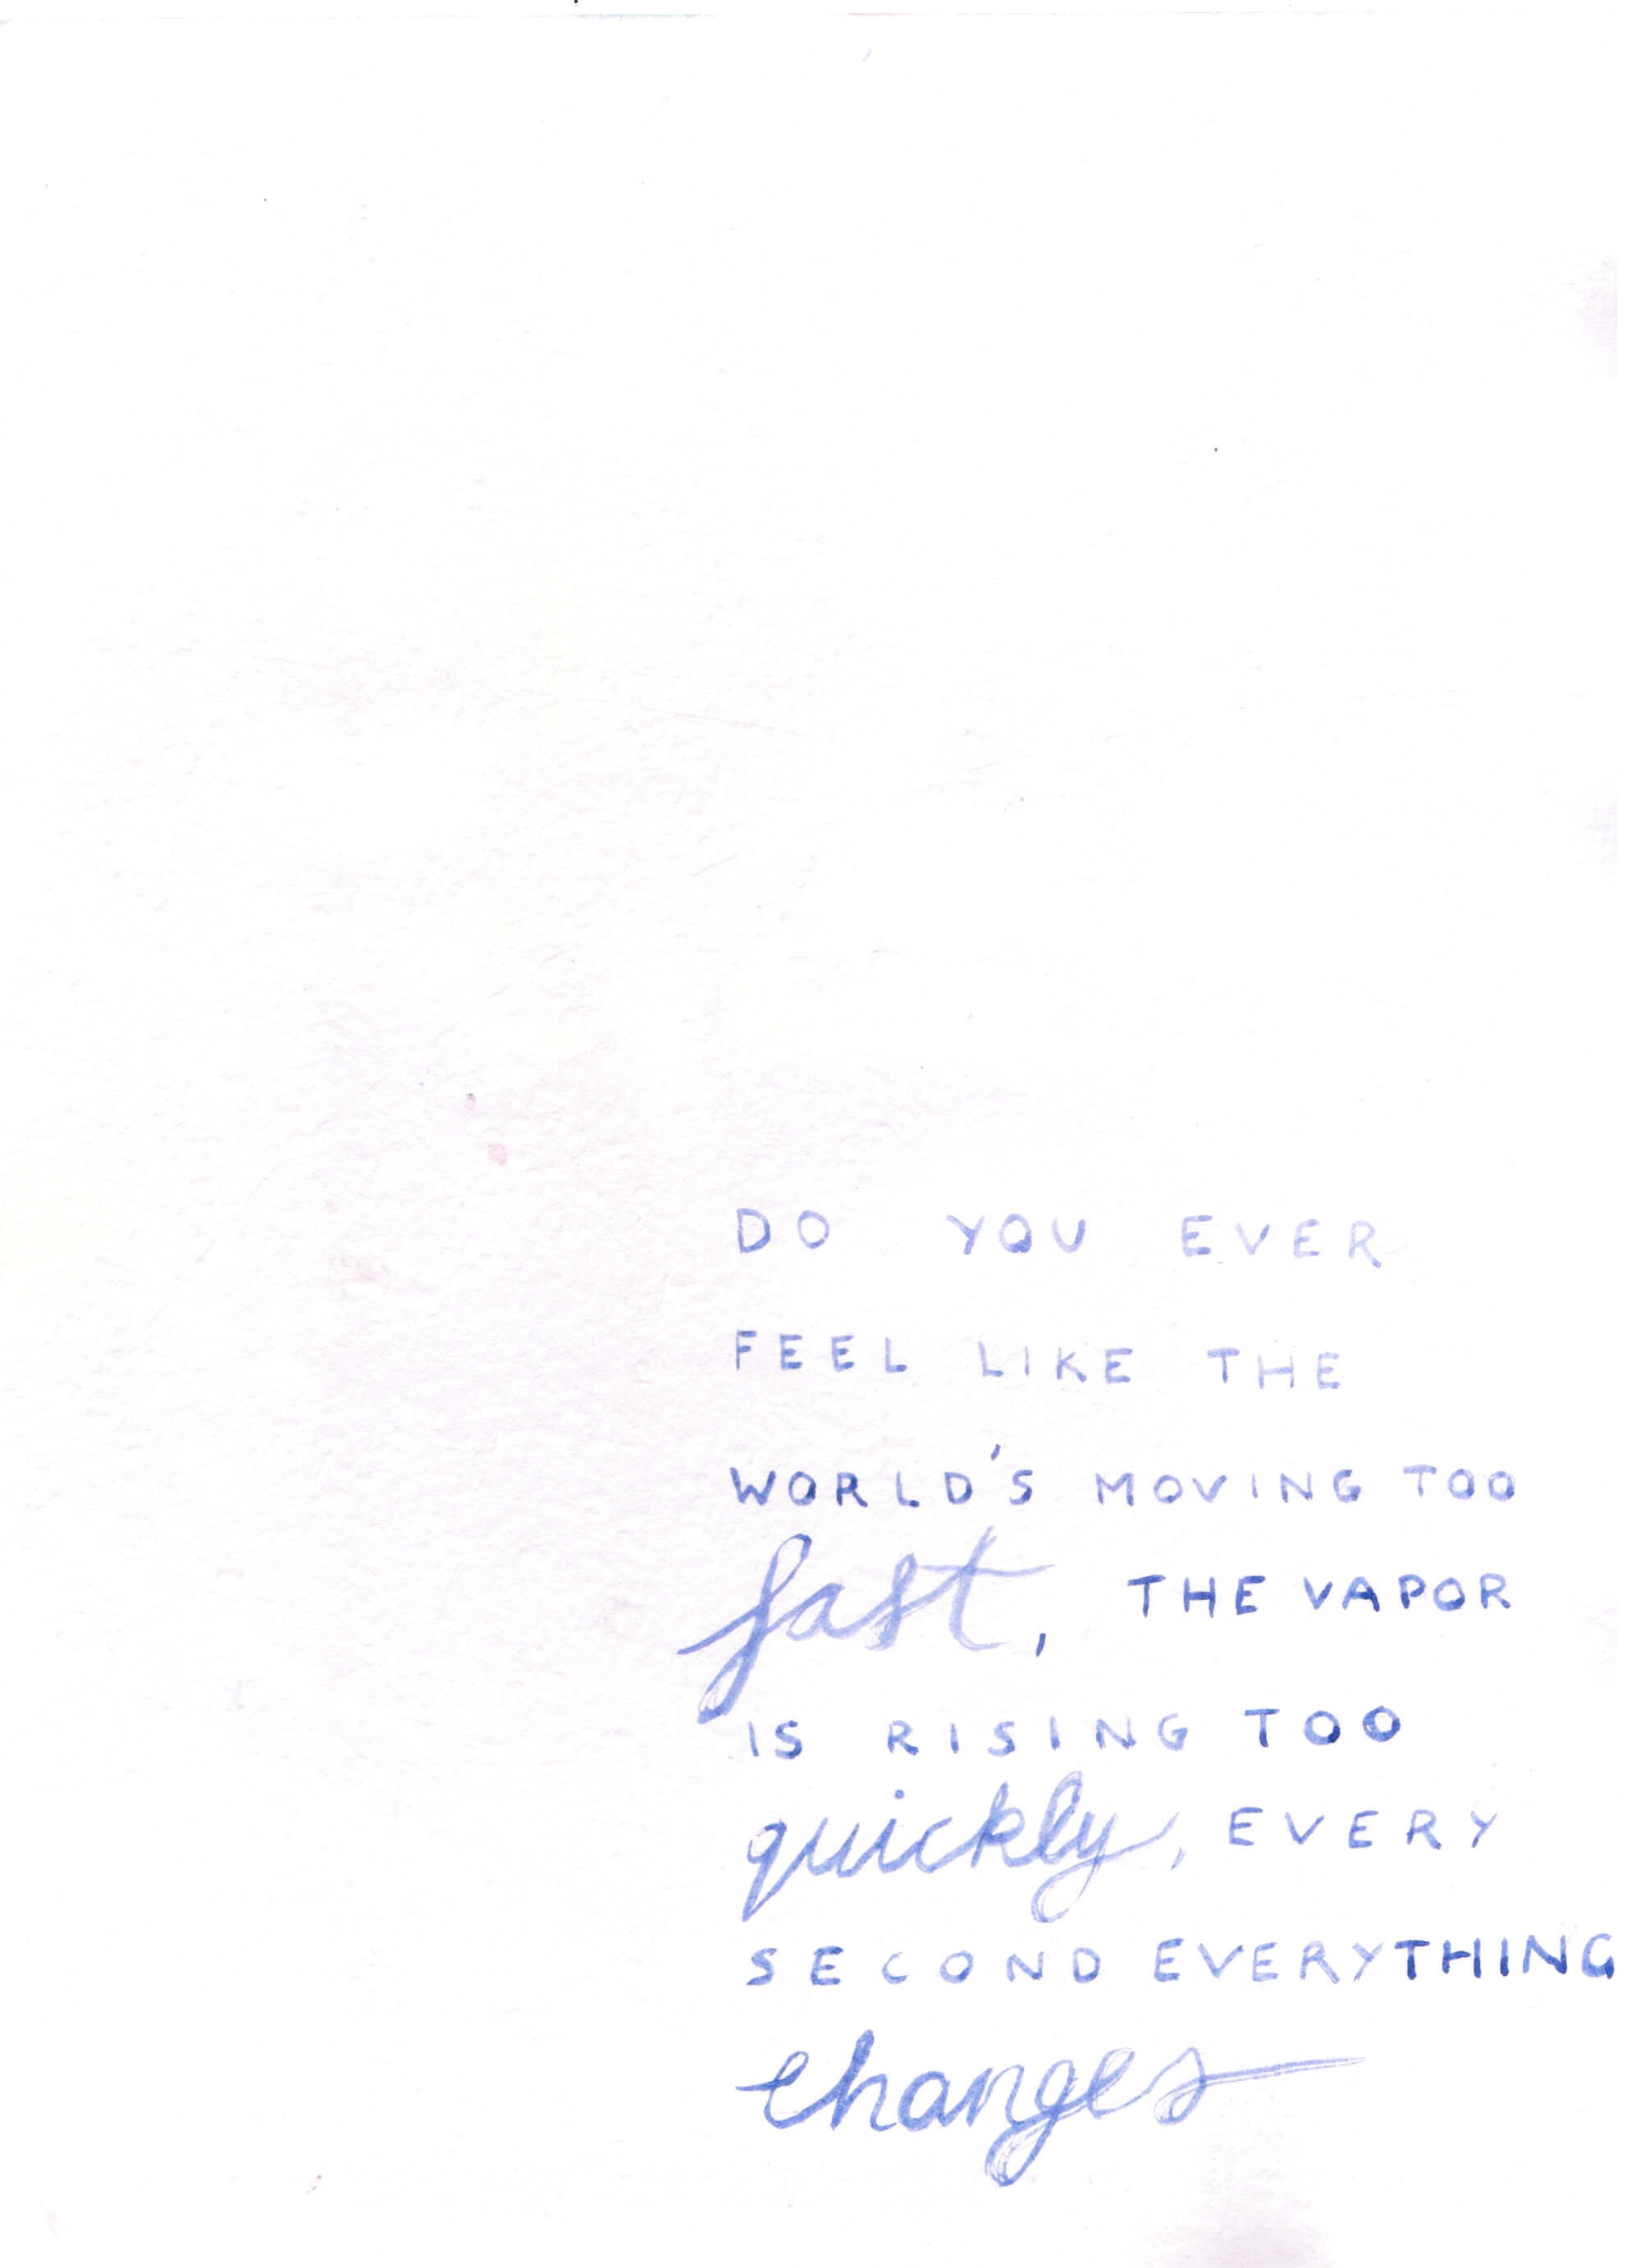 DO YOU EVER
FEEL LIKE THE
WORLD'S MOVING TOO
fast, THE VAPOR
IS RISING TOO
quickly, EVERY
SECOND EVERYTHING
changes